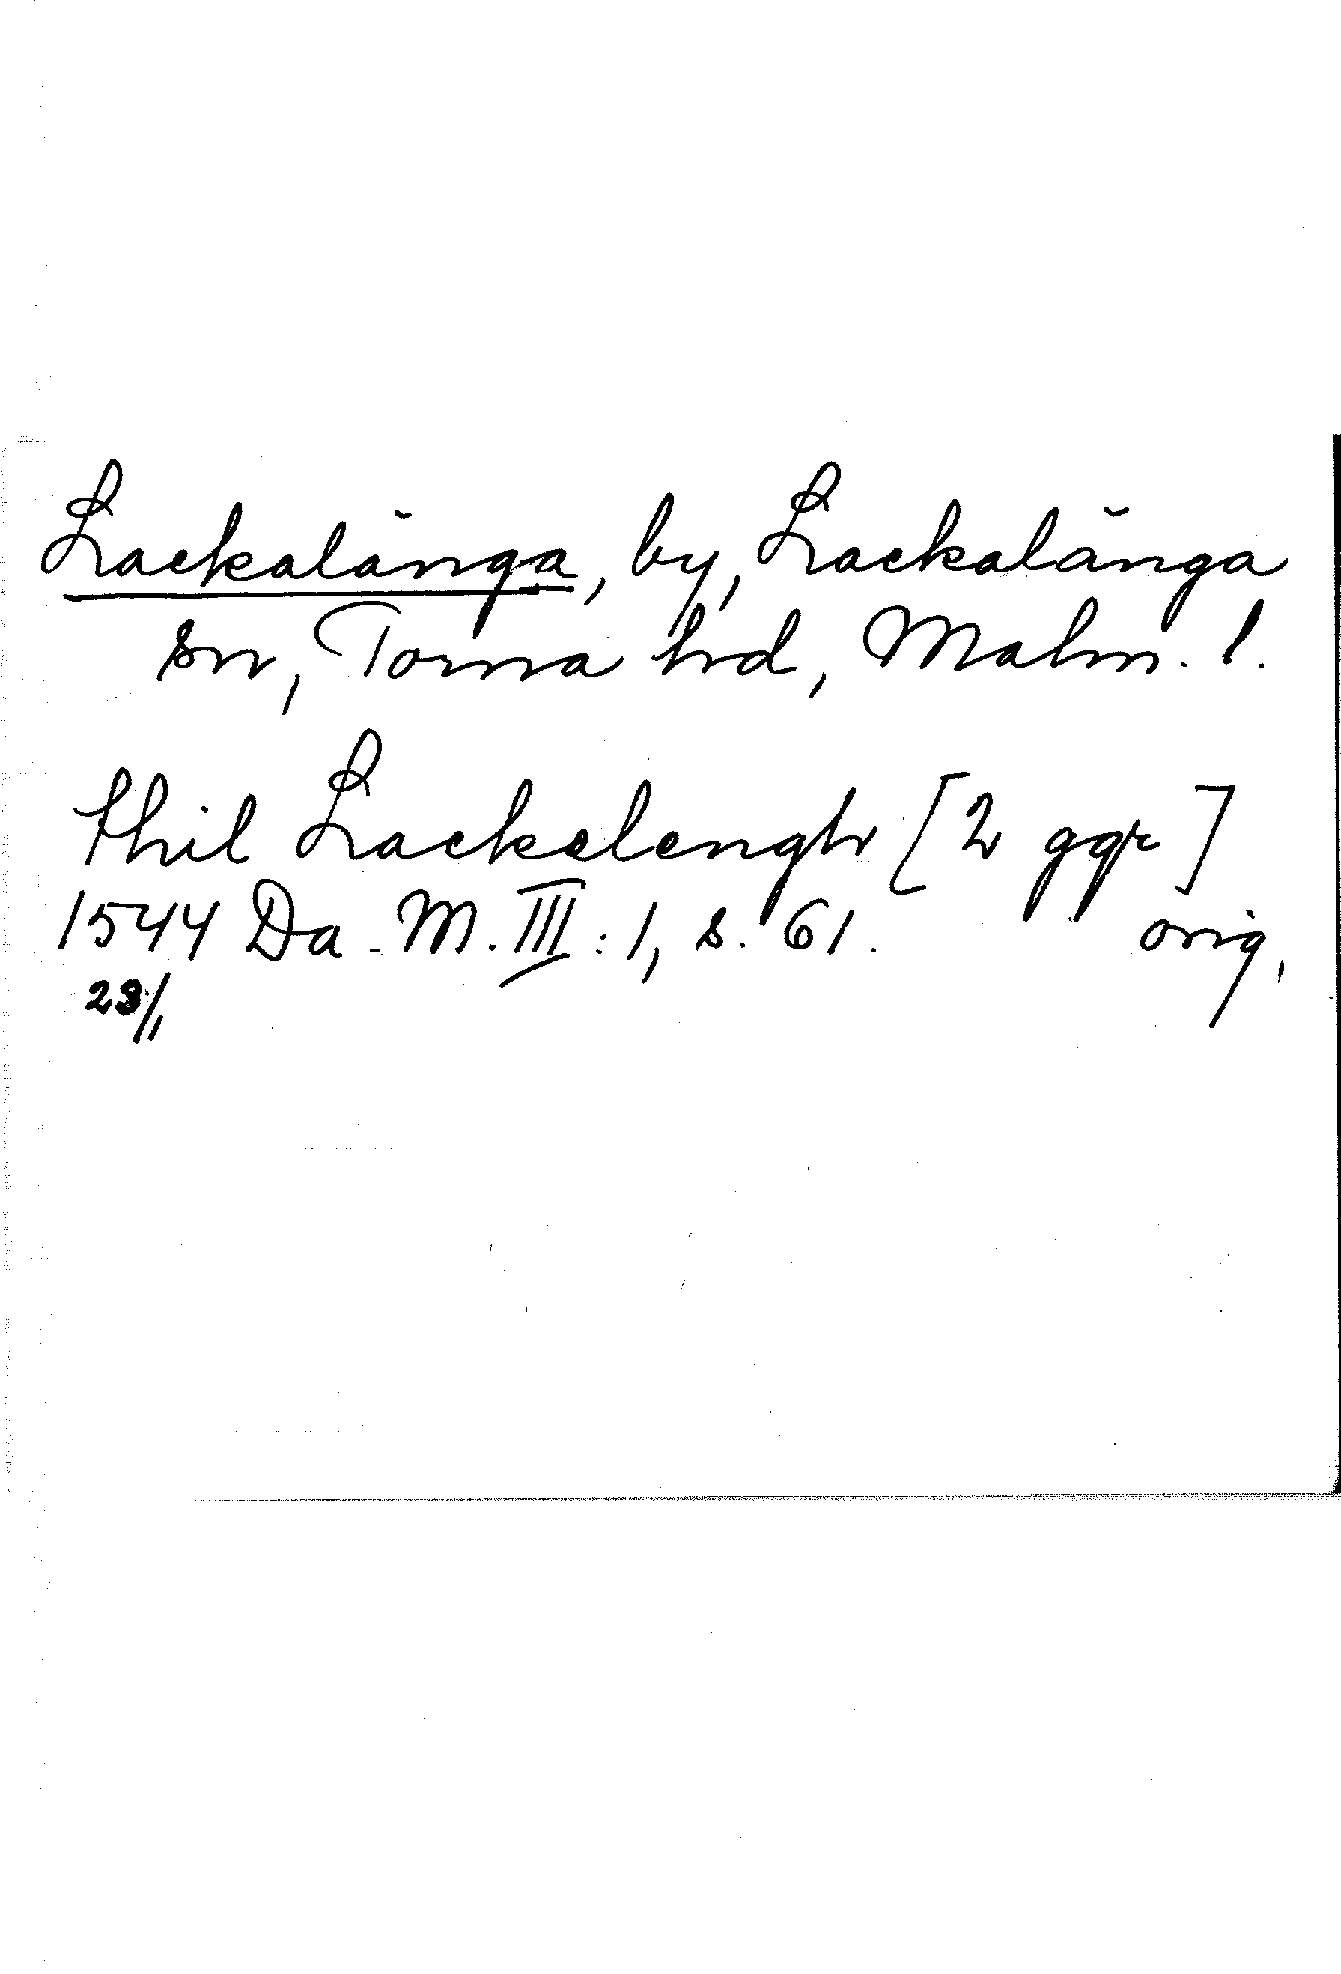 Lackalänga, by, Lackalänga
sn, Torna hrd, Malm. l.
thil Lackelengh [2 ggr]
1544 Da. M. III:1, s. 61. orig.
23/1